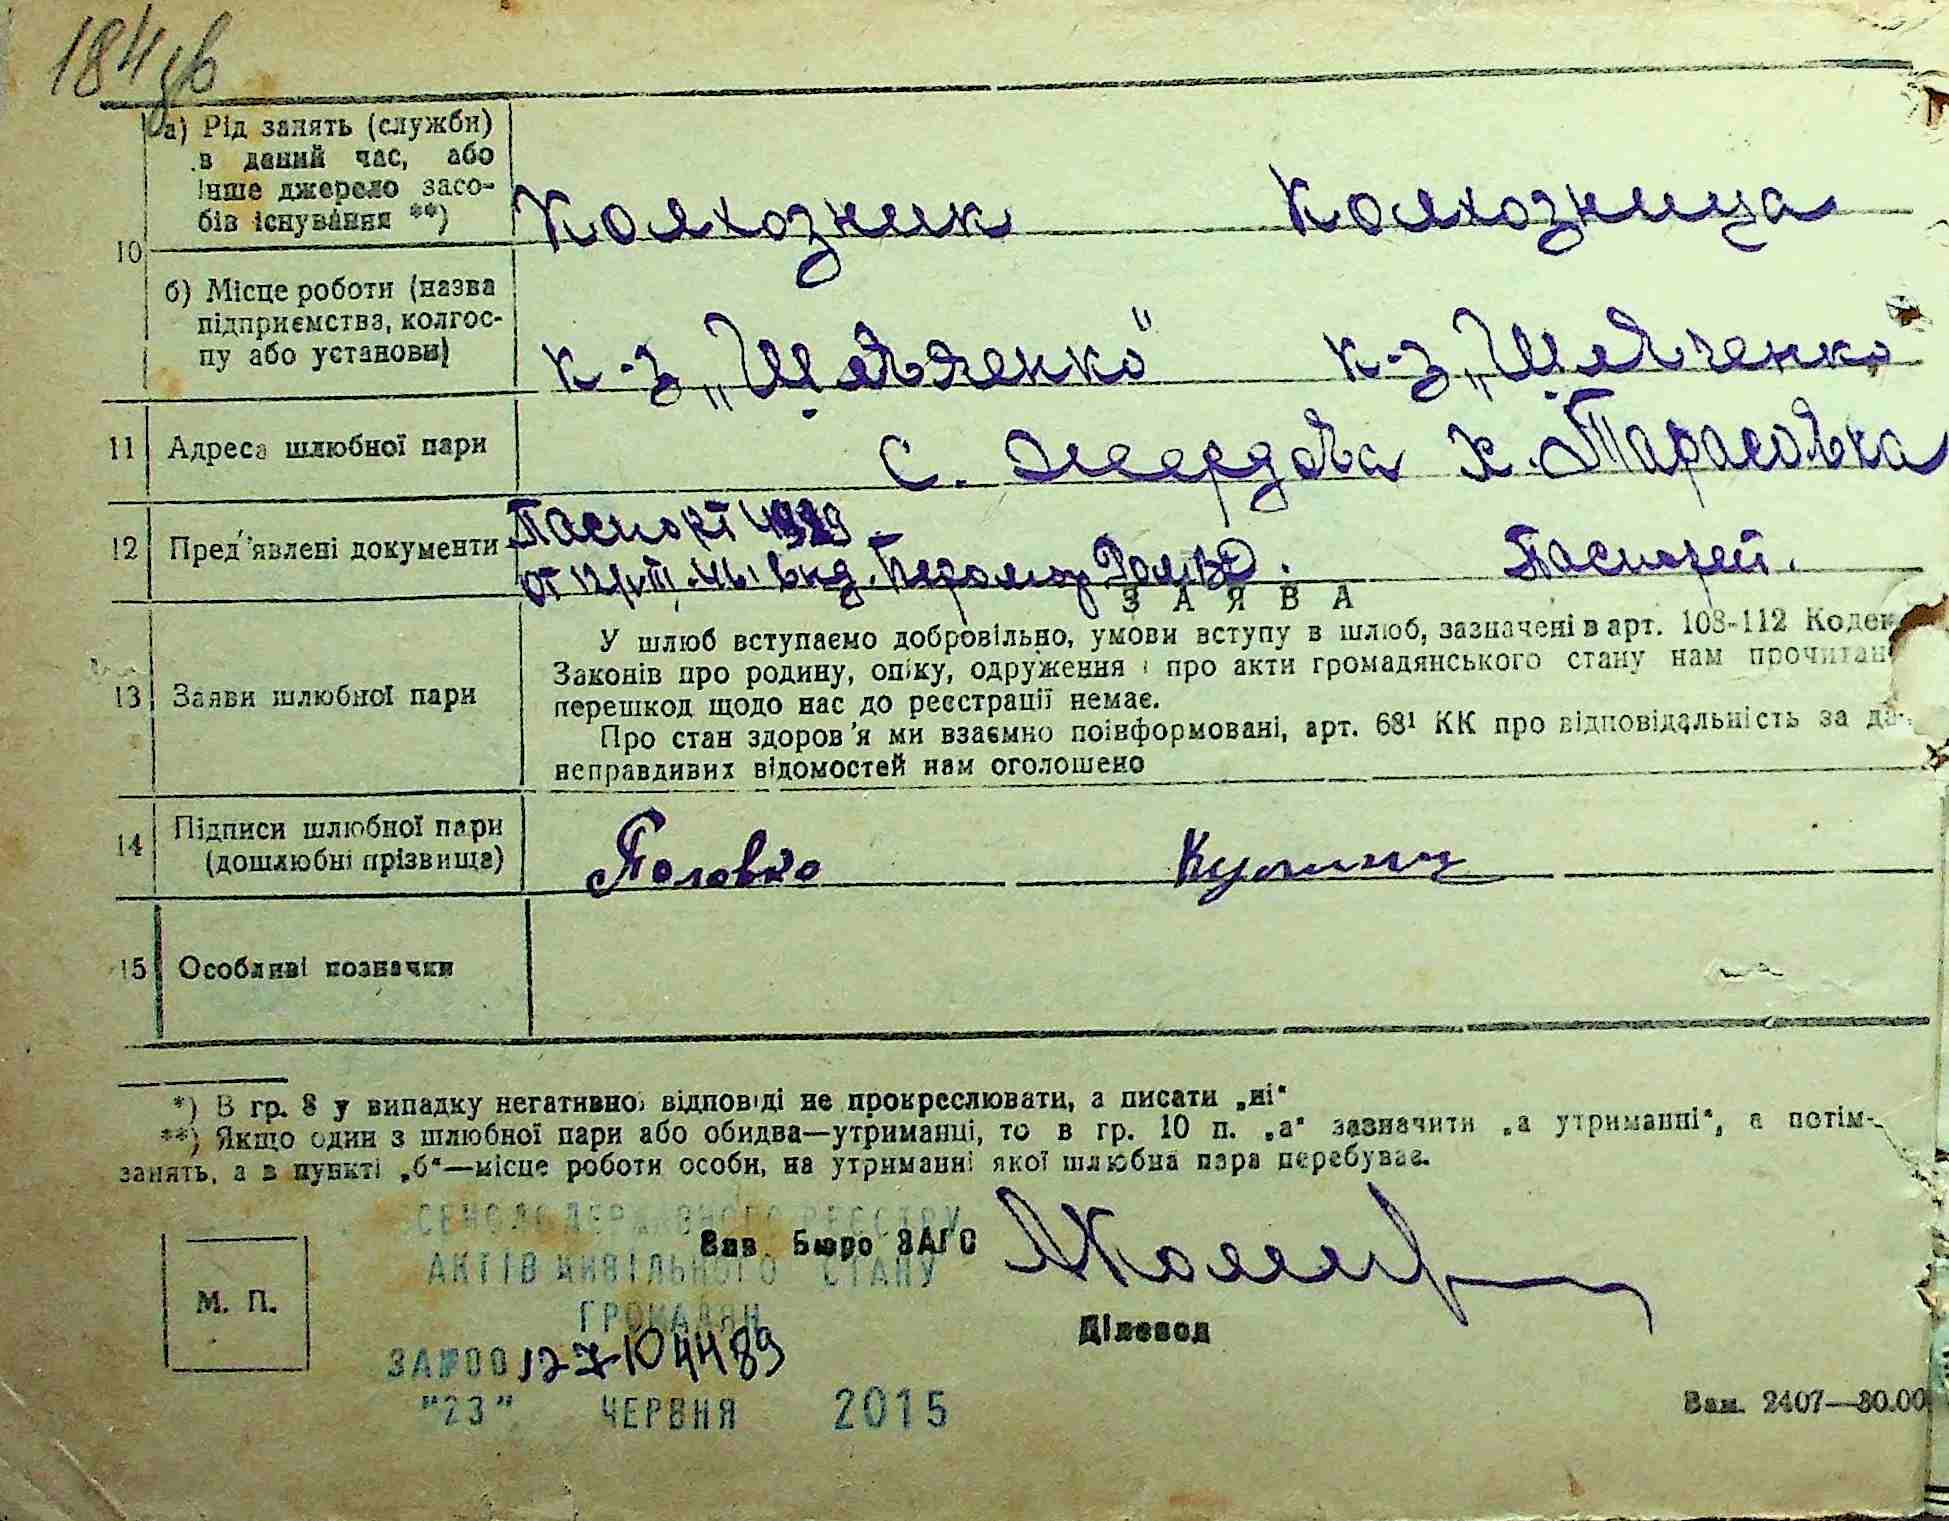 184
а) Рід занять (служби)
в даний час, або
інше джерело засо-
бів існування **)
Колхозник Колхозница
10
б) Місце роботи (назва
підприємства, колгос-
пу або установи)
к-з „Шевченко" к-з „Шевченко"
11 Адреса шлюбної пари с. Жердова х. Тарасовка
12 Пред'явлені документи Паспорт
От 12/VIII.
З А Я В А
У шлюб вступаємо добровільно, умови вступу в шлюб, зазначені в арт. 108-112
Законів про родину, опіку, одруження і про акти громадянського стану нам
13 Заяви шлюбної пари
перешкод щодо нас до реєстрації немає.
Про стан здоров'я ми взаємно поінформовані, арт. 68¹ КК про відповідальність за
неправдивих відомостей нам оголошено
14 Підписи шлюбної пари
(дошлюбні прізвища)
Головко
15 Особливі позначки
*) В гр. 8 у випадку негативної відповіді не прокреслювати, а писати „ні"
**) Якщо один з шлюбної пари або обидва—утриманці, то в гр. 10 п. „а" зазначити „а утриманні", а потім-
занять, а в пункті „б"—місце роботи особи, на утриманні якої шлюбна пара перебуває.
ДЕРЖАВНОГО РЕЄСТРУ
Зав. Бюро ЗАГС
АКТІВ ЦИВІЛЬНОГО СТАНУ
М. П.
ГРОМАДЯН
Діловод
ЗА №00127104489
"23" ЧЕРВНЯ 2015
Зам. 2407—30.00